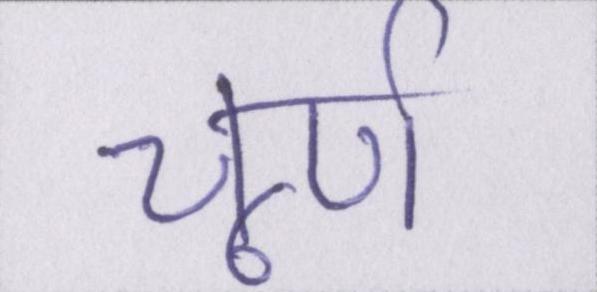 चूर्ण